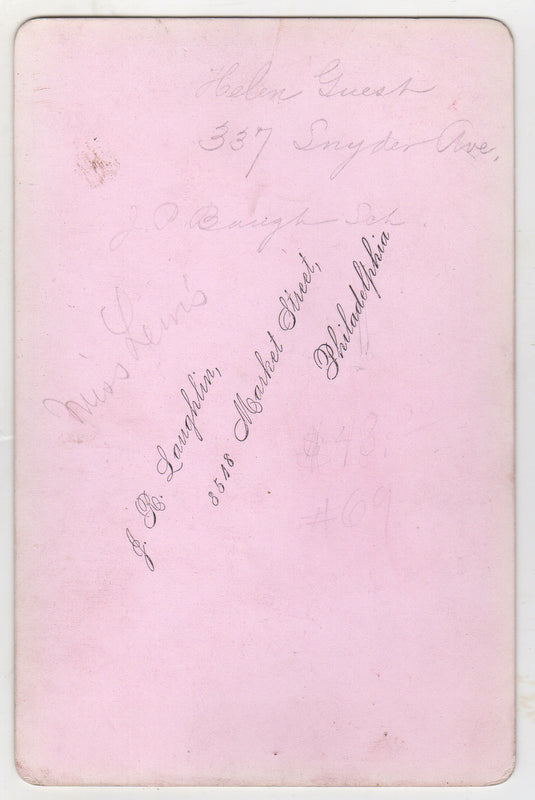 Helen Guest
337 Snyder Ave,
J. P. Baugh Sch
Miss Lewis
J. R. Laughlin,
3518 Market Street,
Philadelphia
#48
#69